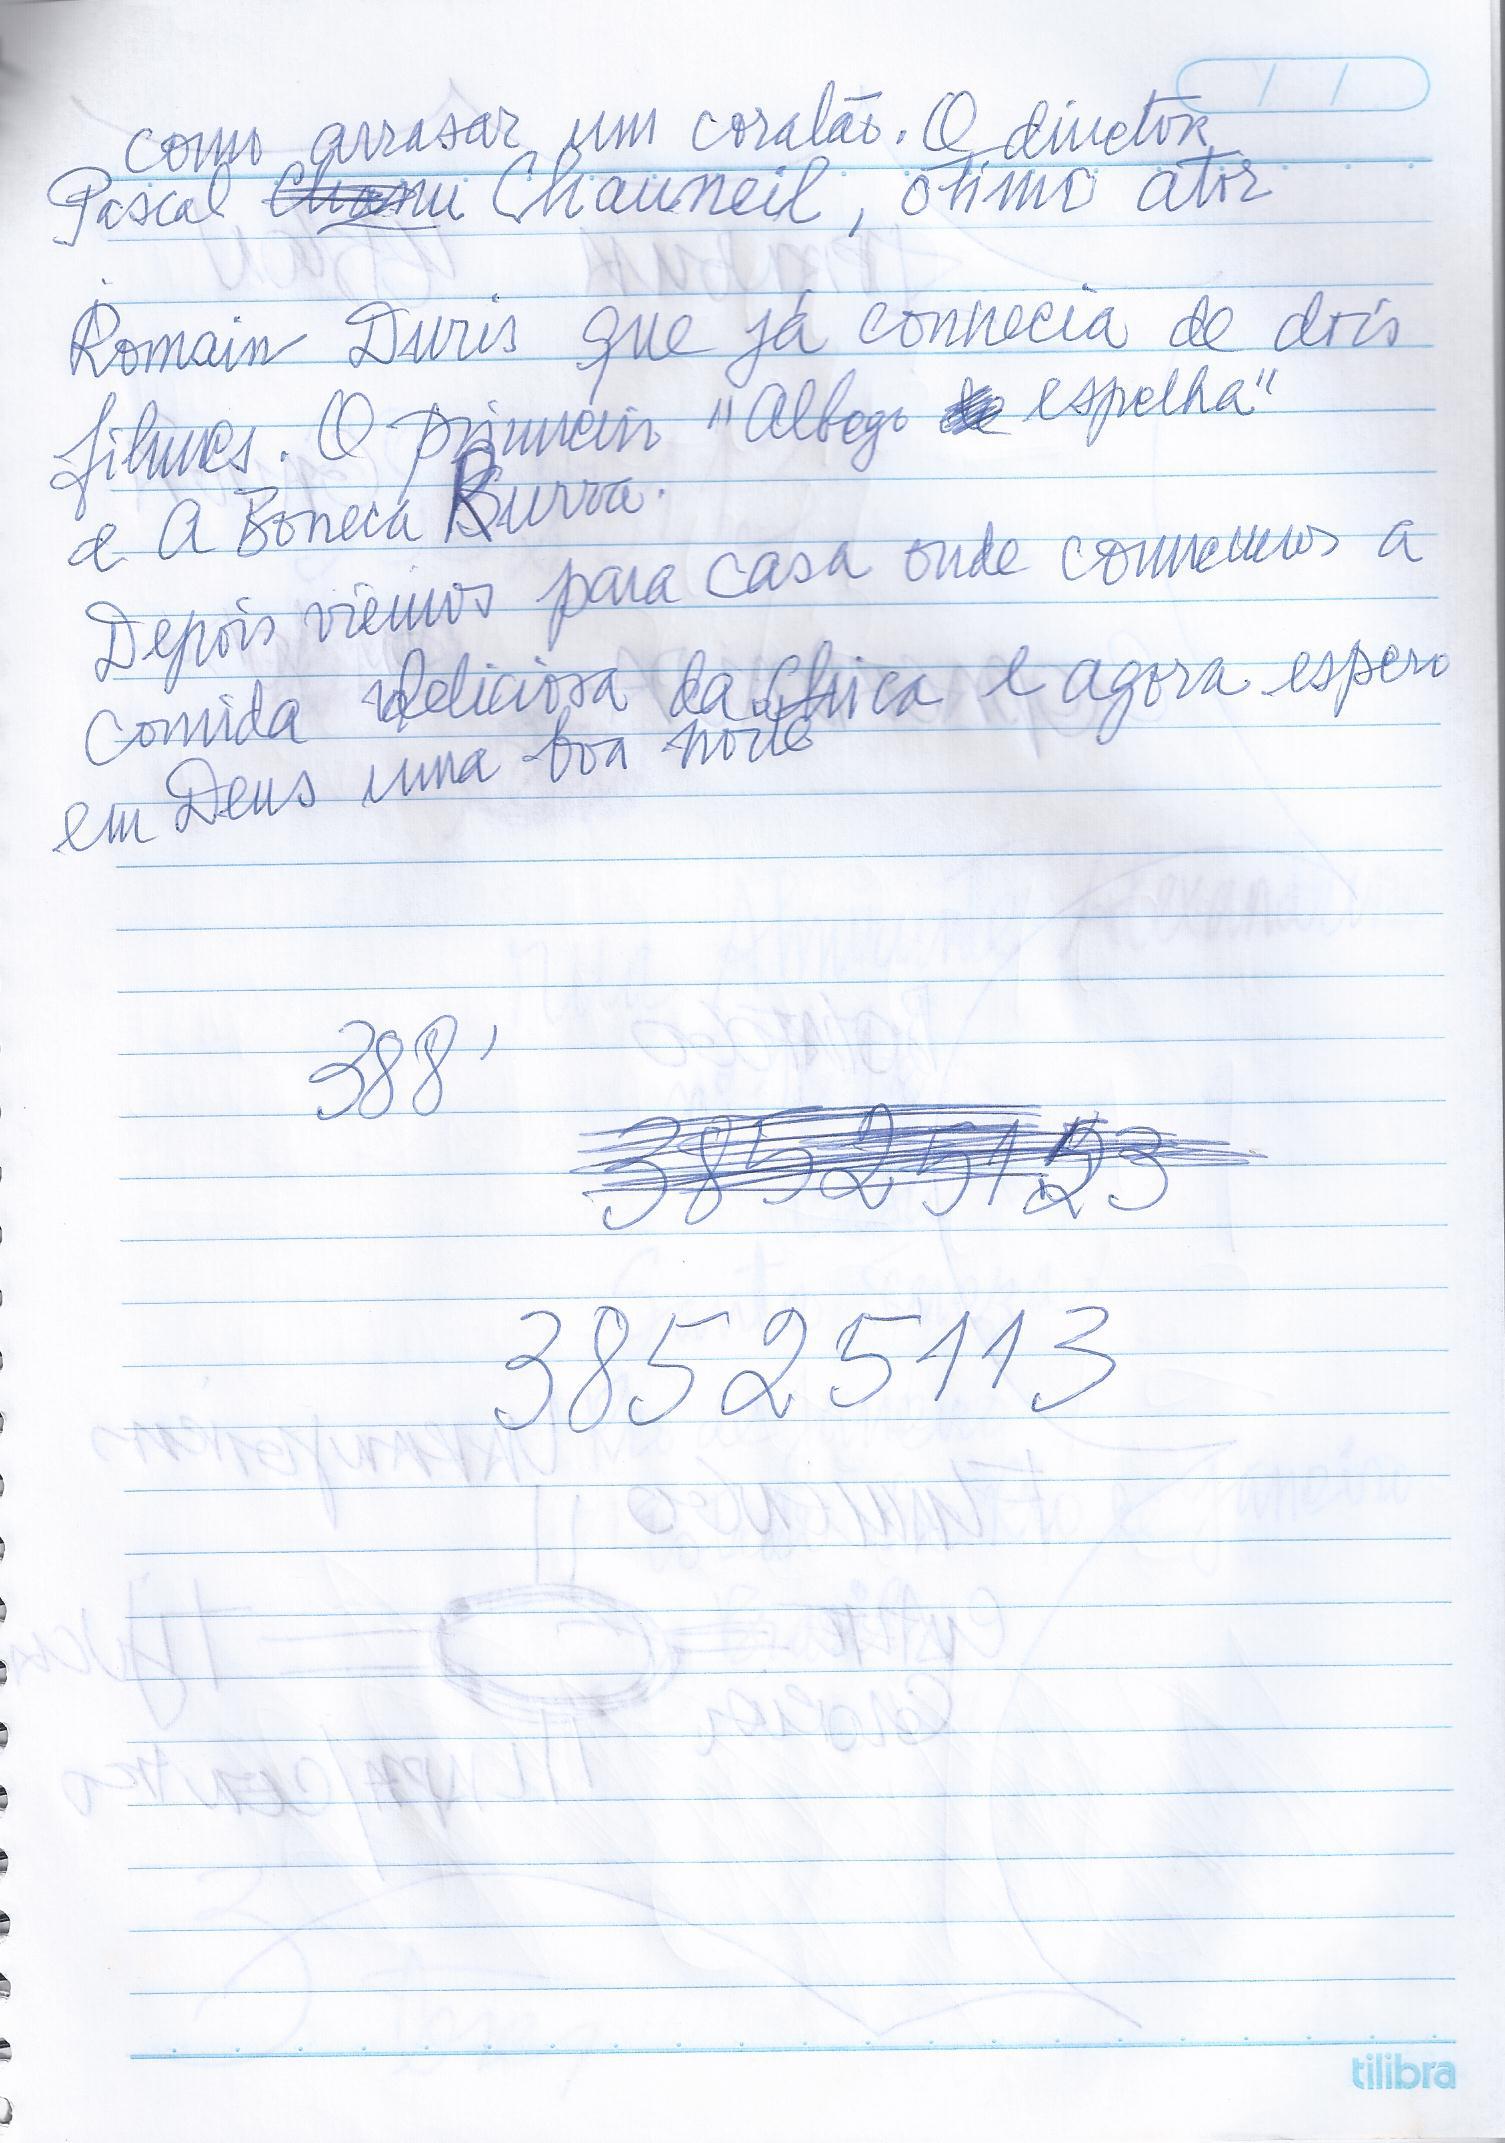 como arrasar um coralão. O diretor
Pascal Chaumeil, ótimo ator
Romain Duris que já conhecia de dois
filmes. O primeiro "Albego espelha"
e A Boneca Burra.
Depois viemos para casa onde comemos a
comida deliciosa da Chica e agora espero
em Deus uma boa noite
388'
38525123
38525113
tilibra